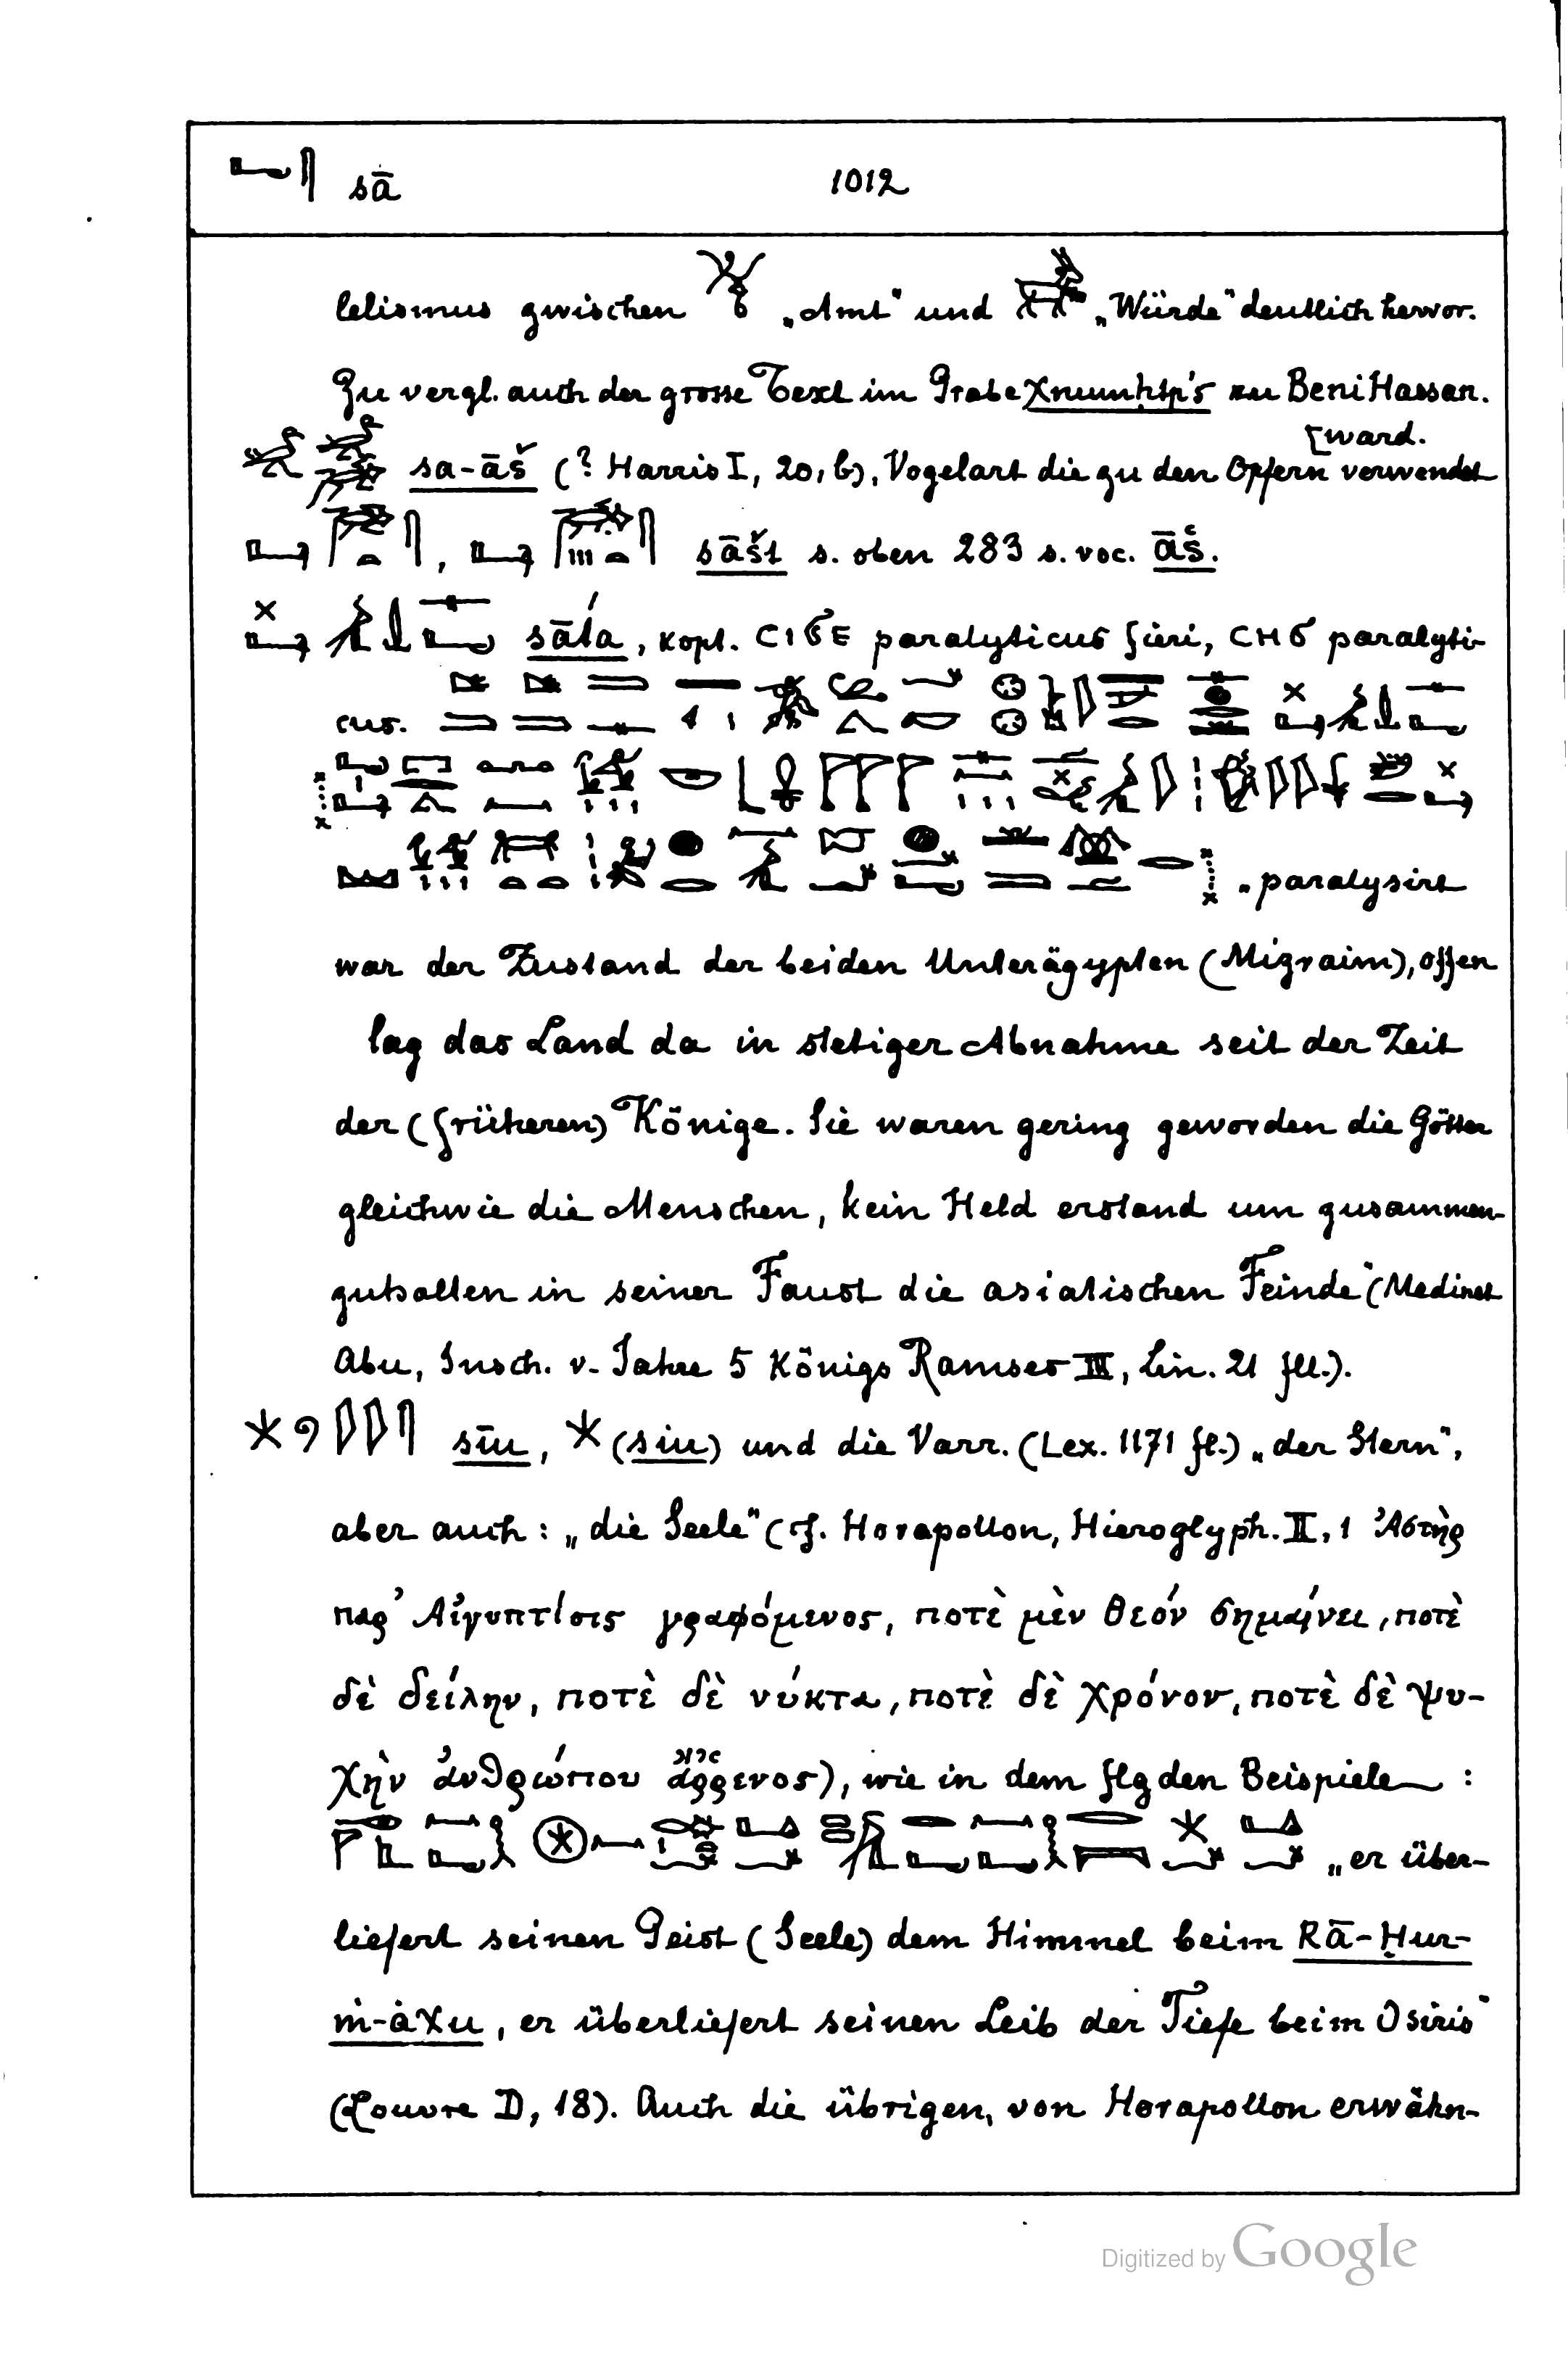 sā 1012
lelismus zwischen „Amt" und „Würde" deutlich hervor.
Zu vergl. auch der grosse Text im Grabe Xnumḥtp's zu Beni Hassan.
[ward.
sa-āš (? Harris I, 20, b), Vogelart die zu den Opfern verwendet
, sāšt s. oben 283 s. voc. āš.
sāta, kopt. ϹΙϬΕ paralyticus fieri, ϹΗϬ paralyti-
cus.
„paralysirt
war der Zustand der beiden Unterägypten (Mizraim), offen
lag das Land da in stetiger Abnahme seit der Zeit
der (früheren) Könige. Sie waren gering geworden die Götter
gleichwie die Menschen, kein Held erstand um zusammen-
zuhalten in seiner Faust die asiatischen Feinde" (Medinet
Abu, Insch. v. Jahre 5 Königs Ramses III, Lin. 21 fll.).
sīu, (siu) und die Varr. (Lex. 1171 fl.) „der Stern",
aber auch: „die Seele" (cf. Horapollon, Hieroglyph. II, 1 Ἀστὴρ
παρ' Αἰγυπτίοις γραφόμενος, ποτὲ μὲν θεόν σημαίνει, ποτὲ
δὲ δείλην, ποτὲ δὲ νύκτα, ποτὲ δὲ χρόνον, ποτὲ δὲ ψυ-
χὴν ἀνθρώπου ἄρρενος), wie in dem flgden Beispiele :
„er über-
liefert seinen Geist (Seele) dem Himmel beim Rā-Ḥur-
ṁ-àχu, er überliefert seinen Leib der Tiefe beim Osiris"
(Louvre D, 18). Auch die übrigen, von Horapollon erwähn-
Digitized by Google